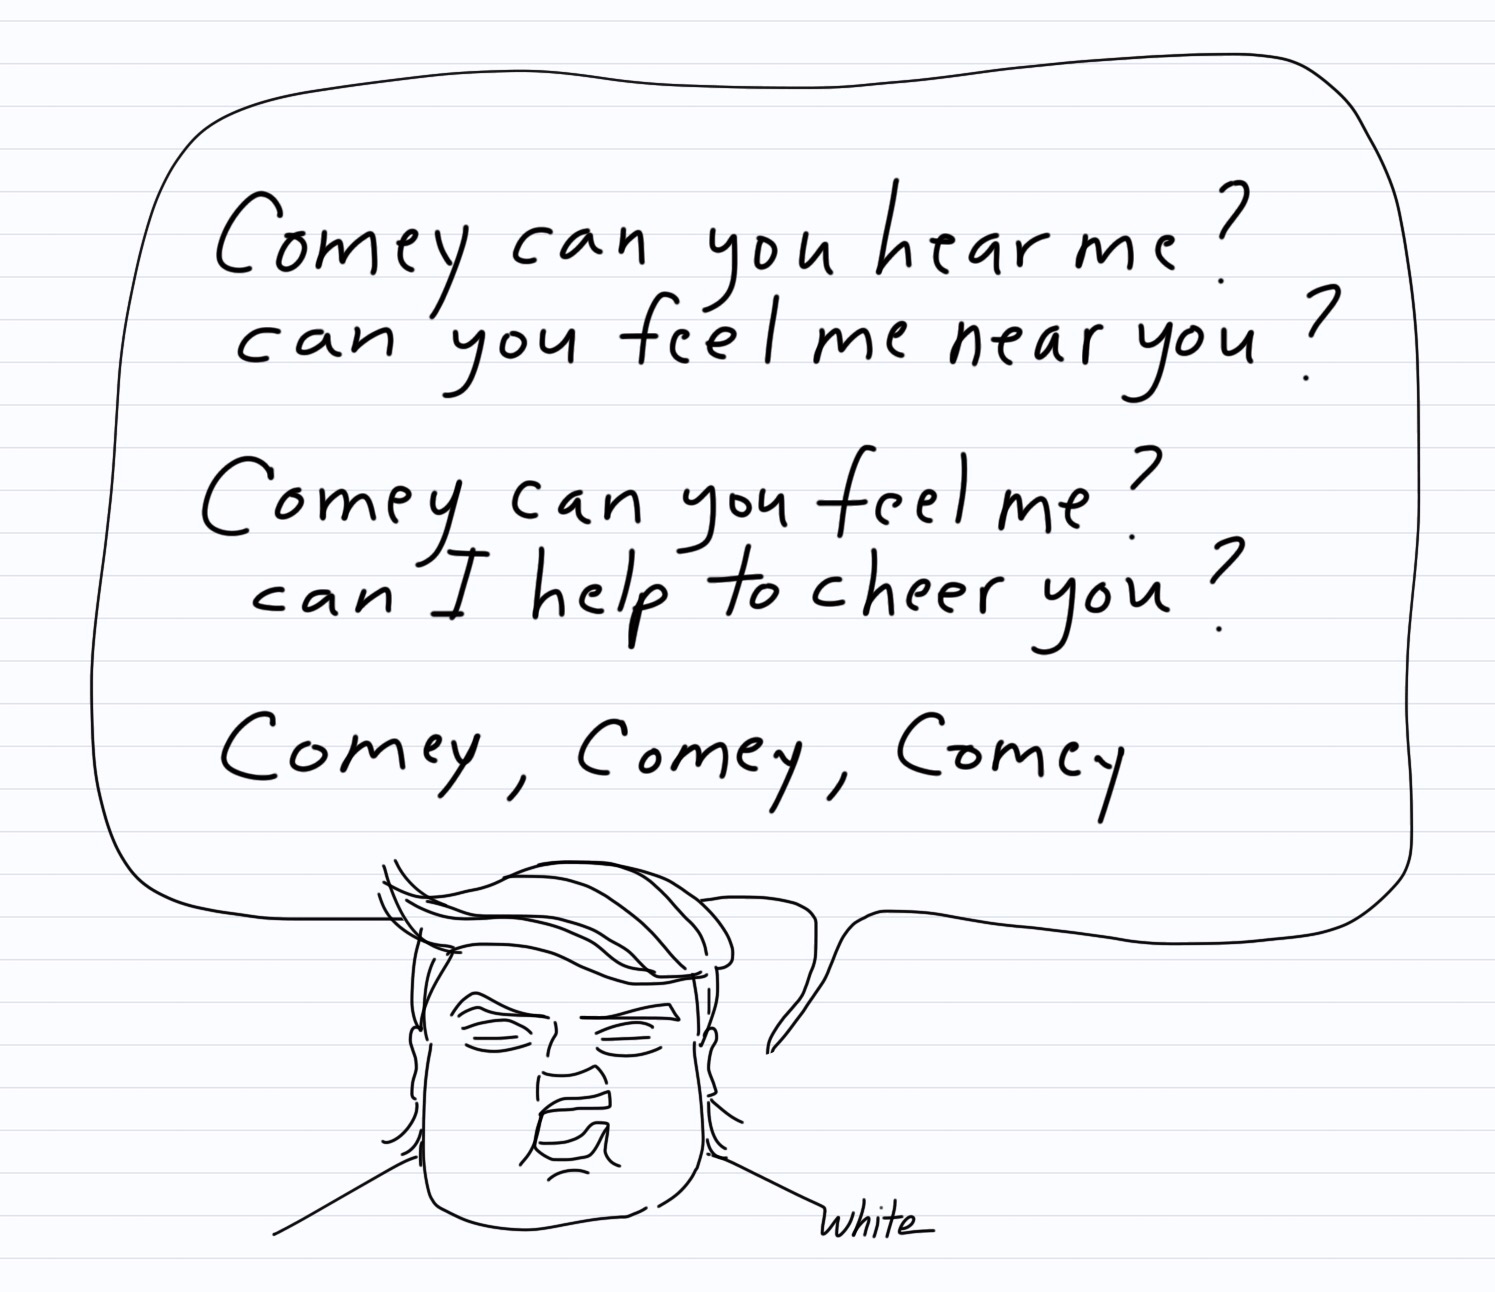 Comey can you hear me?
can you feel me near you?
Comey can you feel me?
can I help to cheer you?
Comey, Comey, Comey
White